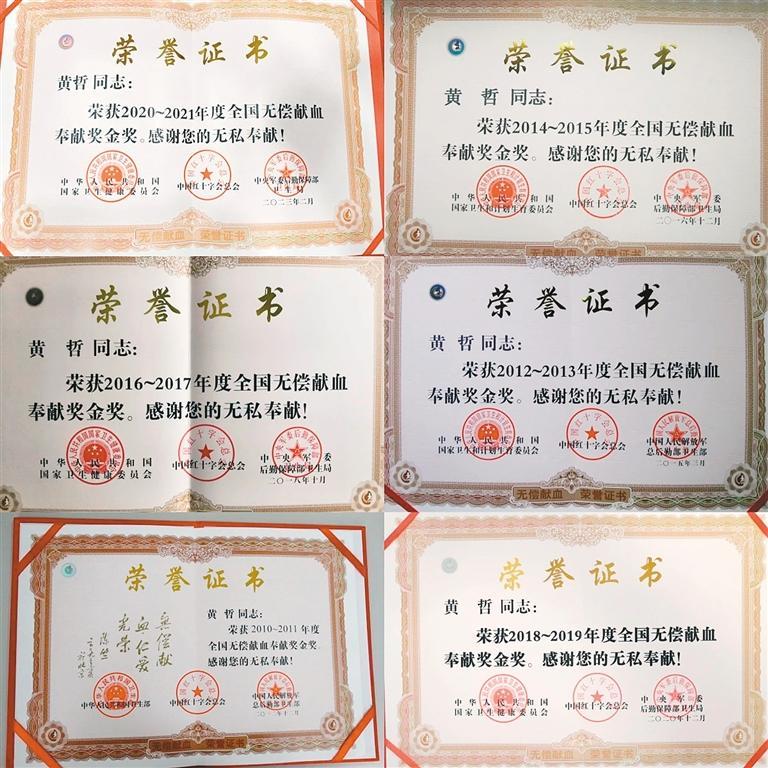 荣誉证书
黄哲同志：
荣获2020~2021年度全国无偿献血
奉献奖金奖。感谢您的无私奉献！
中华人民共和国
国家卫生健康委员会
中国红十字会总会
中央军委后勤保障部
卫生局
二〇二三年二月
无偿献血 荣誉证书
荣誉证书
黄 哲 同志：
荣获2014~2015年度全国无偿献血
奉献奖金奖。感谢您的无私奉献！
中华人民共和国
国家卫生和计划生育委员会
中国红十字会总会
中央军委
后勤保障部卫生局
二〇一六年十二月
无偿献血 荣誉证书
荣誉证书
黄 哲 同志：
荣获2016~2017年度全国无偿献血
奉献奖金奖。感谢您的无私奉献！
中华人民共和国
国家卫生健康委员会
中国红十字会总会
中央军委
后勤保障部卫生局
二〇一八年十月
荣誉证书
黄 哲 同志：
荣获2012~2013年度全国无偿献血
奉献奖金奖。感谢您的无私奉献！
中华人民共和国
国家卫生和计划生育委员会
中国红十字会总会
中国人民解放军
总后勤部卫生部
二〇一五年三月
无偿献血 荣誉证书
荣誉证书
無偿献
血仁爱
光荣
黄 哲 同志：
荣获2010~2011年度
全国无偿献血奉献奖金奖。
感谢您的无私奉献！
中华人民共和国卫生部
中国红十字会总会
中国人民解放军
总后勤部卫生部
无偿献血 荣誉证书
荣誉证书
黄 哲 同志：
荣获2018~2019年度全国无偿献血
奉献奖金奖。感谢您的无私奉献！
中华人民共和国
国家卫生健康委员会
中国红十字会总会
中央军委
后勤保障部卫生局
二〇二〇年十二月
无偿献血 荣誉证书